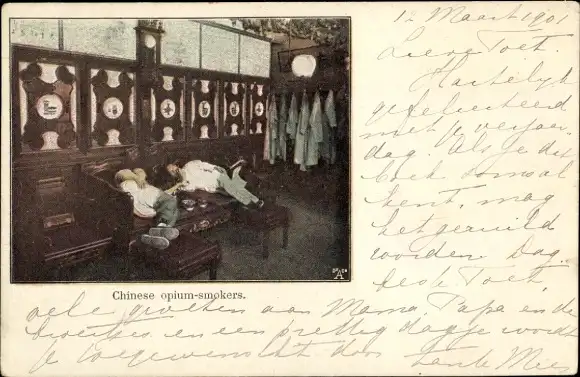 12 Maart 1901
Lieve Toet.
Hartelijk
gefeliciteerd
met je verjaar
dag. Als je dit
boek soms al
kent, mag
het geruild
worden. Dag.
beste Toet,
Chinese opium-smokers.
vele groeten aan Mama, Papa en de
broertjes en een prettig dagje wordt
je toegewenscht door tante Mies